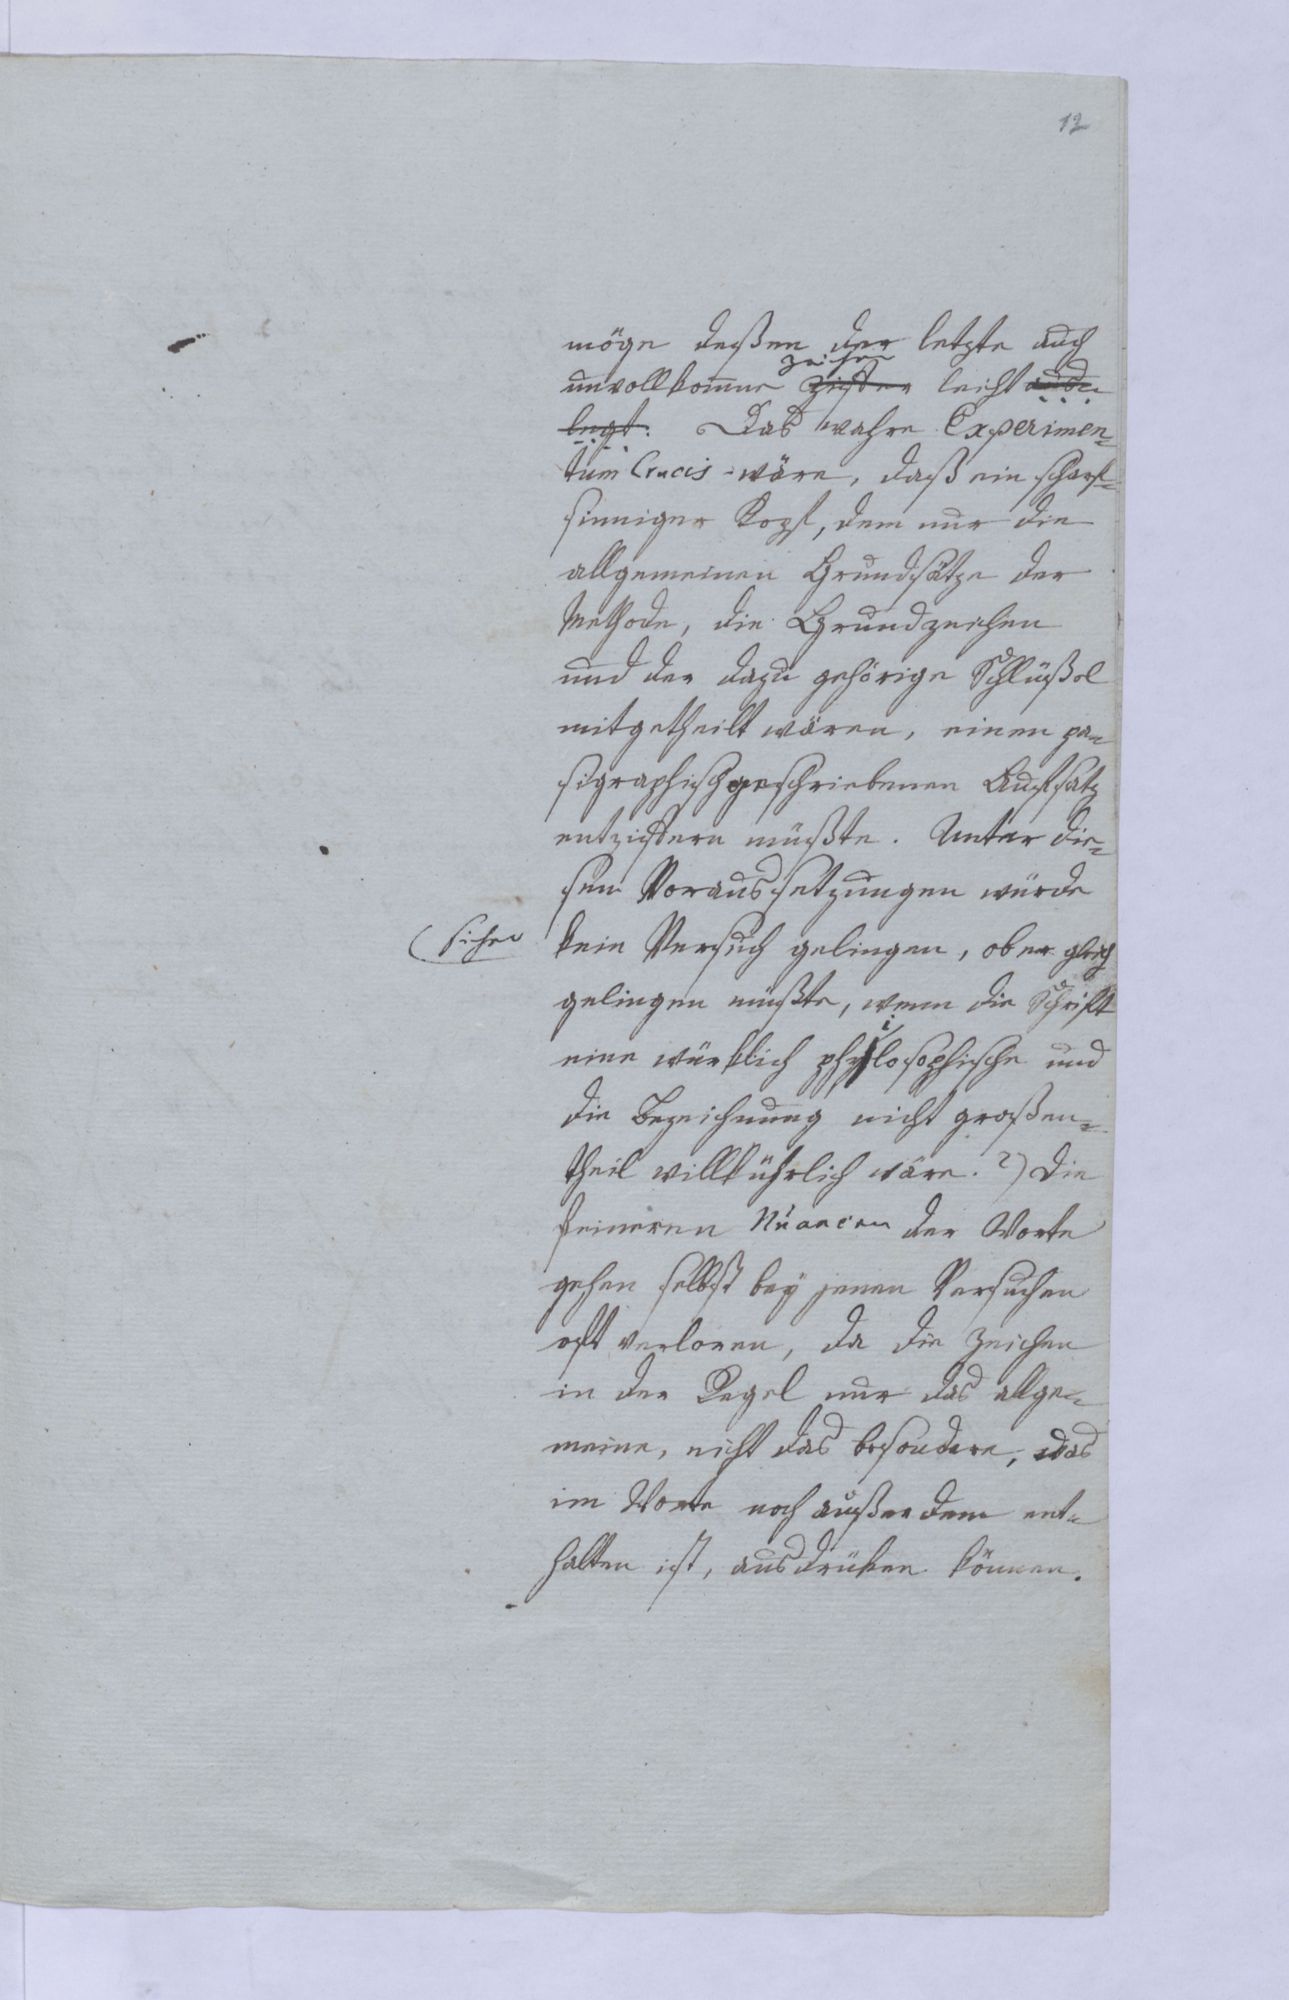 12
möge deßen der letzte auch
Zeichen
unvollkomne Ziffer leicht aus-
legt. Das wahre Experimen-
tum Crucis wäre, daß ein scharf-
sinniger Kopf, dem nur die
allgemeinen Grundsätze der
Methode, die Grundzeichen
und der dazu gehörige Schlüßel
mitgetheilt wären, einen pa-
sigraphisch geschriebenen Aufsatz
entziffern müßte. Unter die-
sen Voraussetzungen würde
sicher
kein Versuch gelingen, ob er gleich
gelingen müßte, wenn die Schrift
i
eine würklich phylosophische und
die Bezeichnung nicht großen-
theil willkührlich wäre. 2) Die
feineren Nüancen der Worte
gehen selbst bey jenen Versuchen
oft verloren, da die Zeichen
in der Regel nur das allge-
meine, nicht das besondere, das
im Worte noch außerdem ent-
halten ist, ausdrüken können.